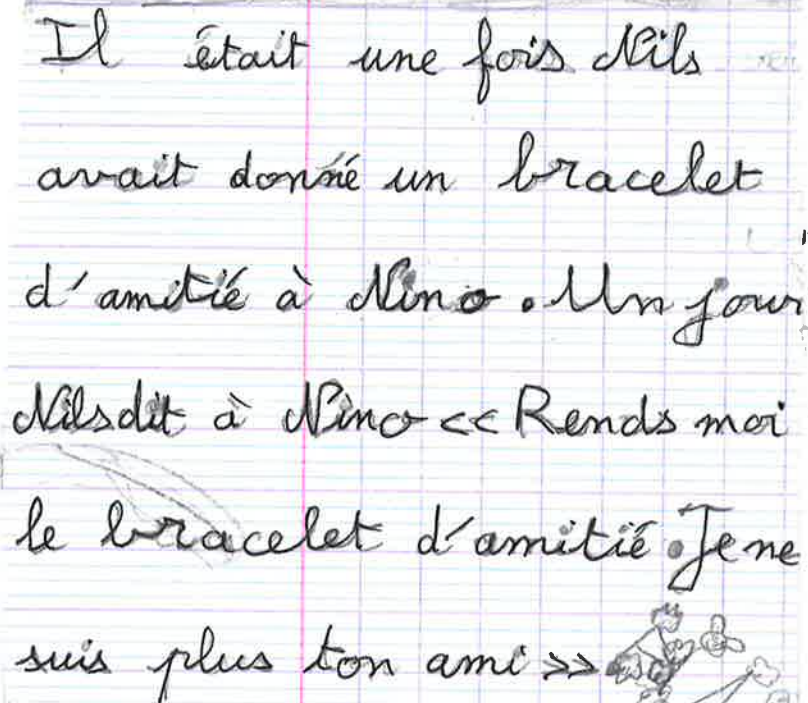 Il était une fois Nils
avait donné un bracelet
d'amitié à Nino. Un jour
Nils dit à Nino << Rends moi
le bracelet d'amitié. Je ne
suis plus ton ami >>